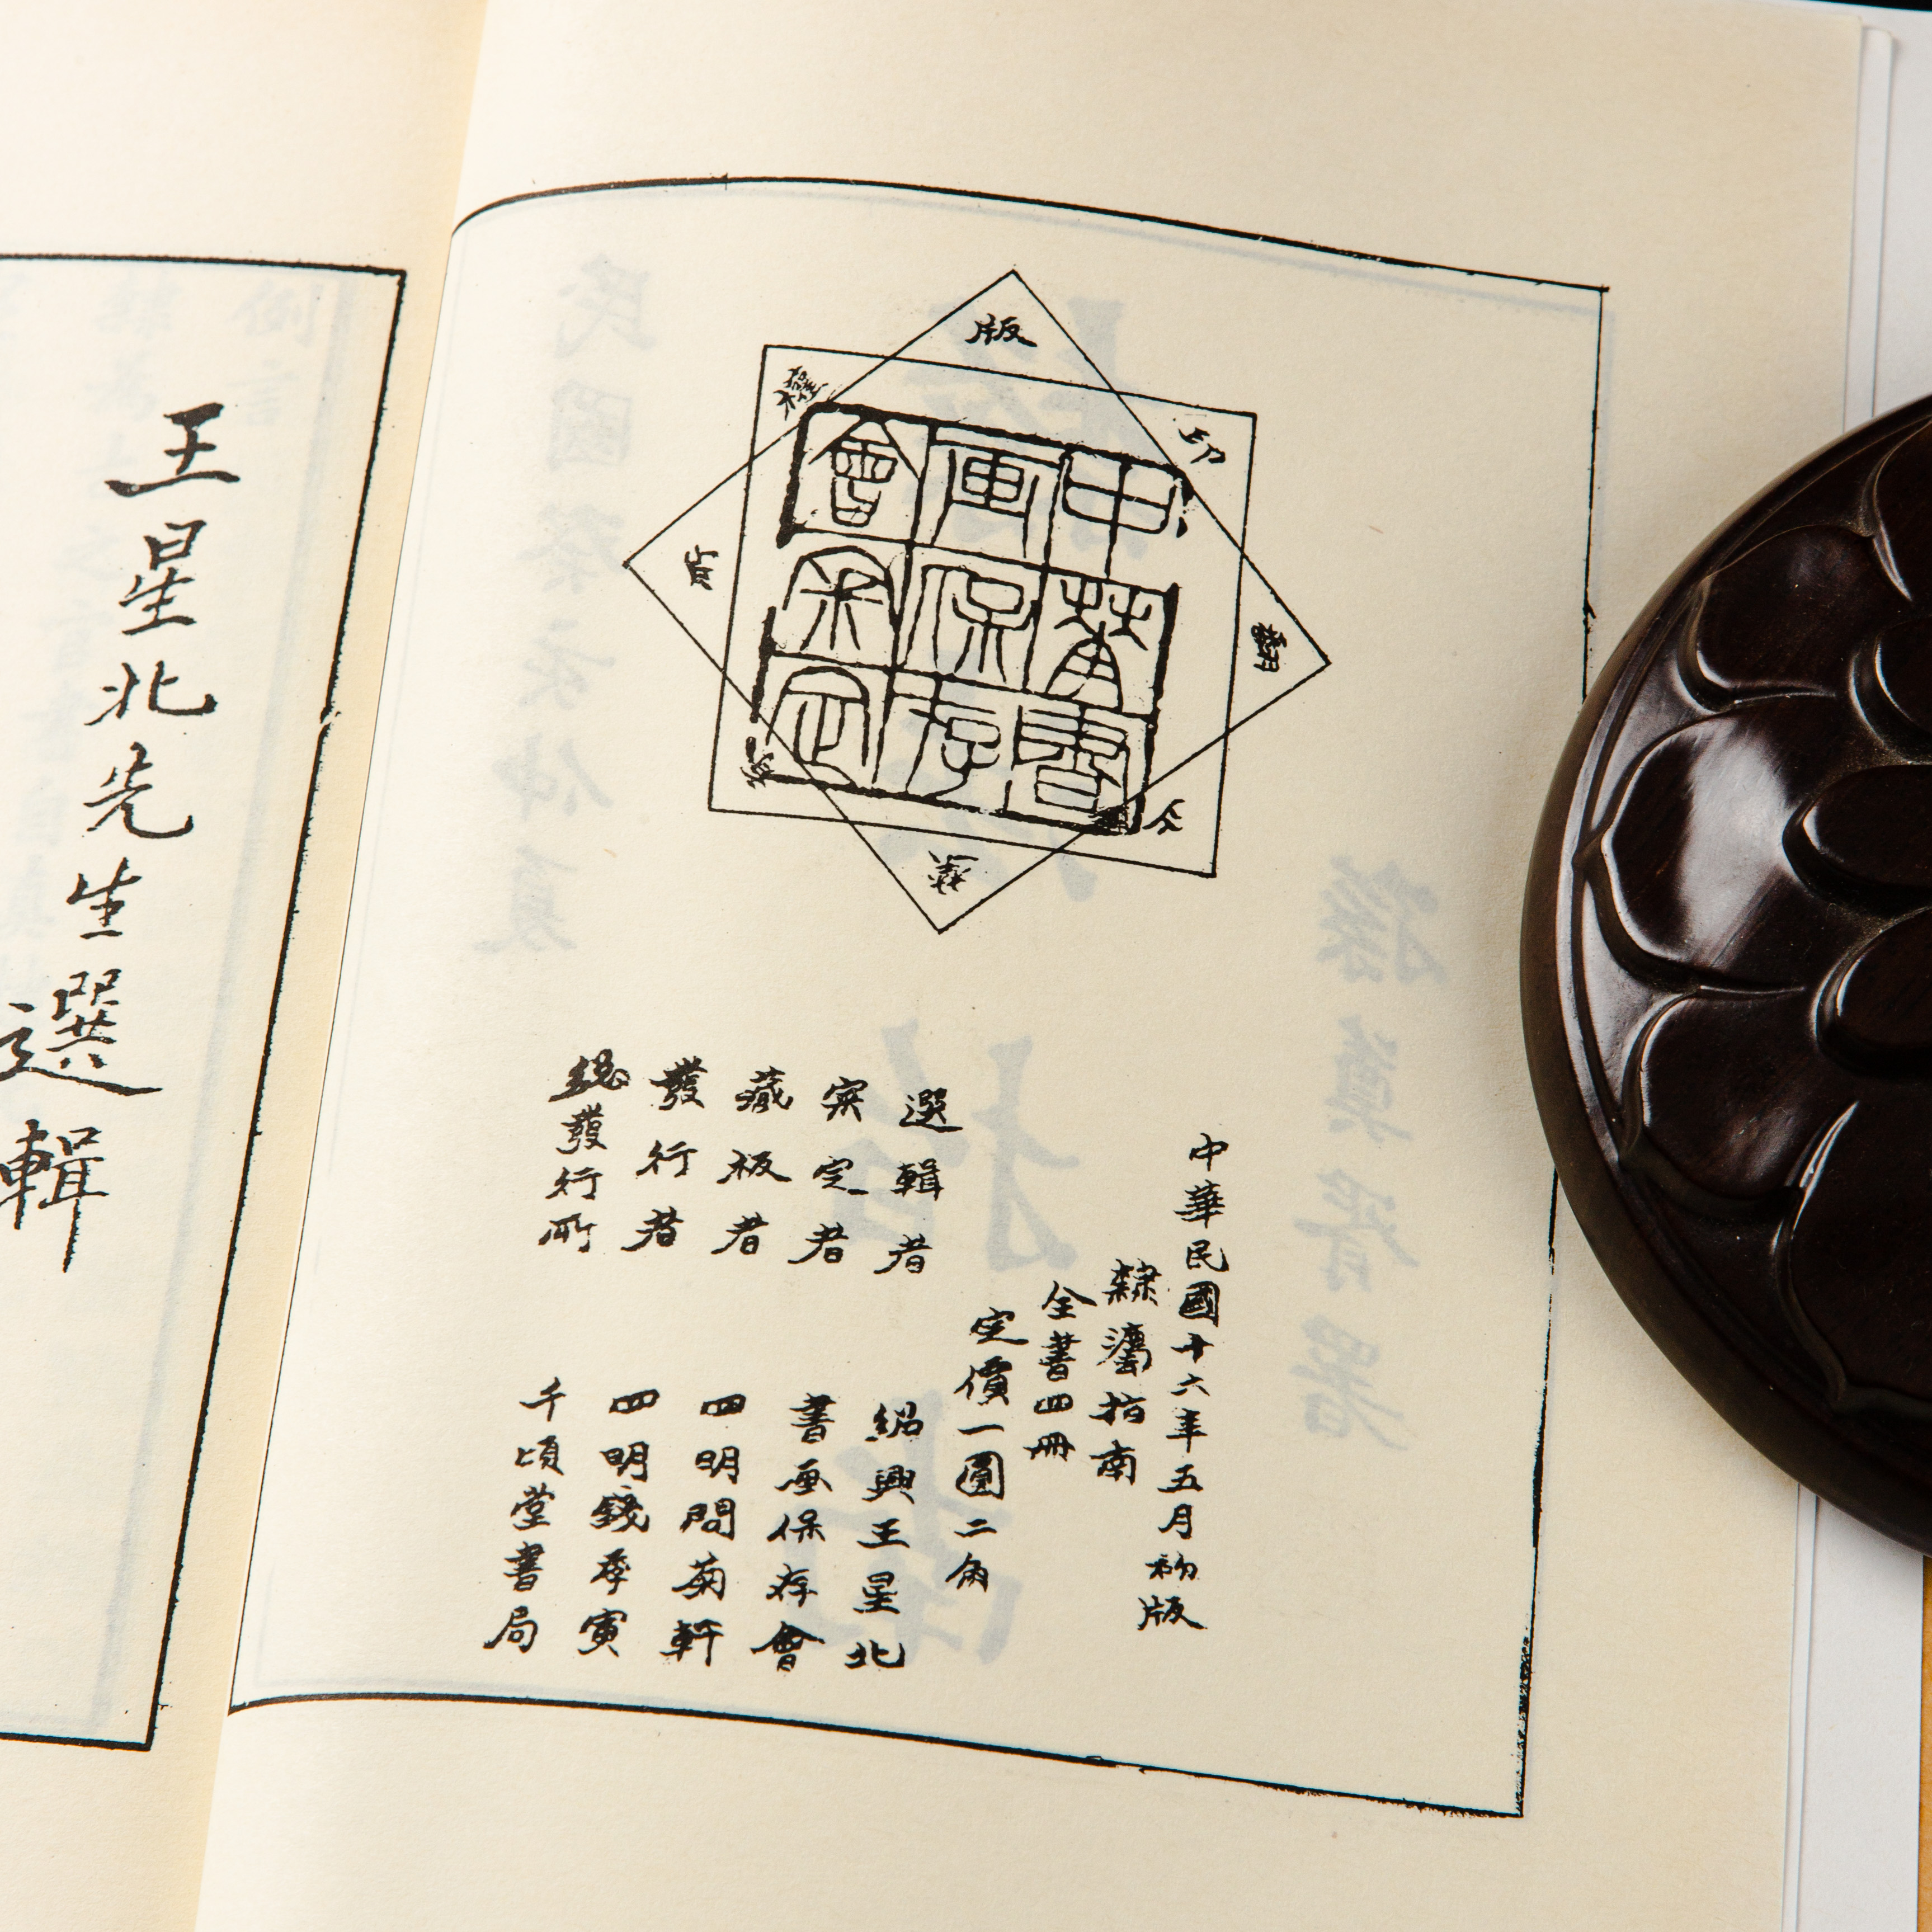 版
權
中華書
画保存
會宷定
中華民國十六年五月初版
隸灋指南
全書四冊
定價一圓二角
選輯者 紹興王星北
宷定者 書画保存會
藏板者 四明問菊軒
發行者 四明錢季寅
總發行所 千頃堂書局
王星北先生選輯